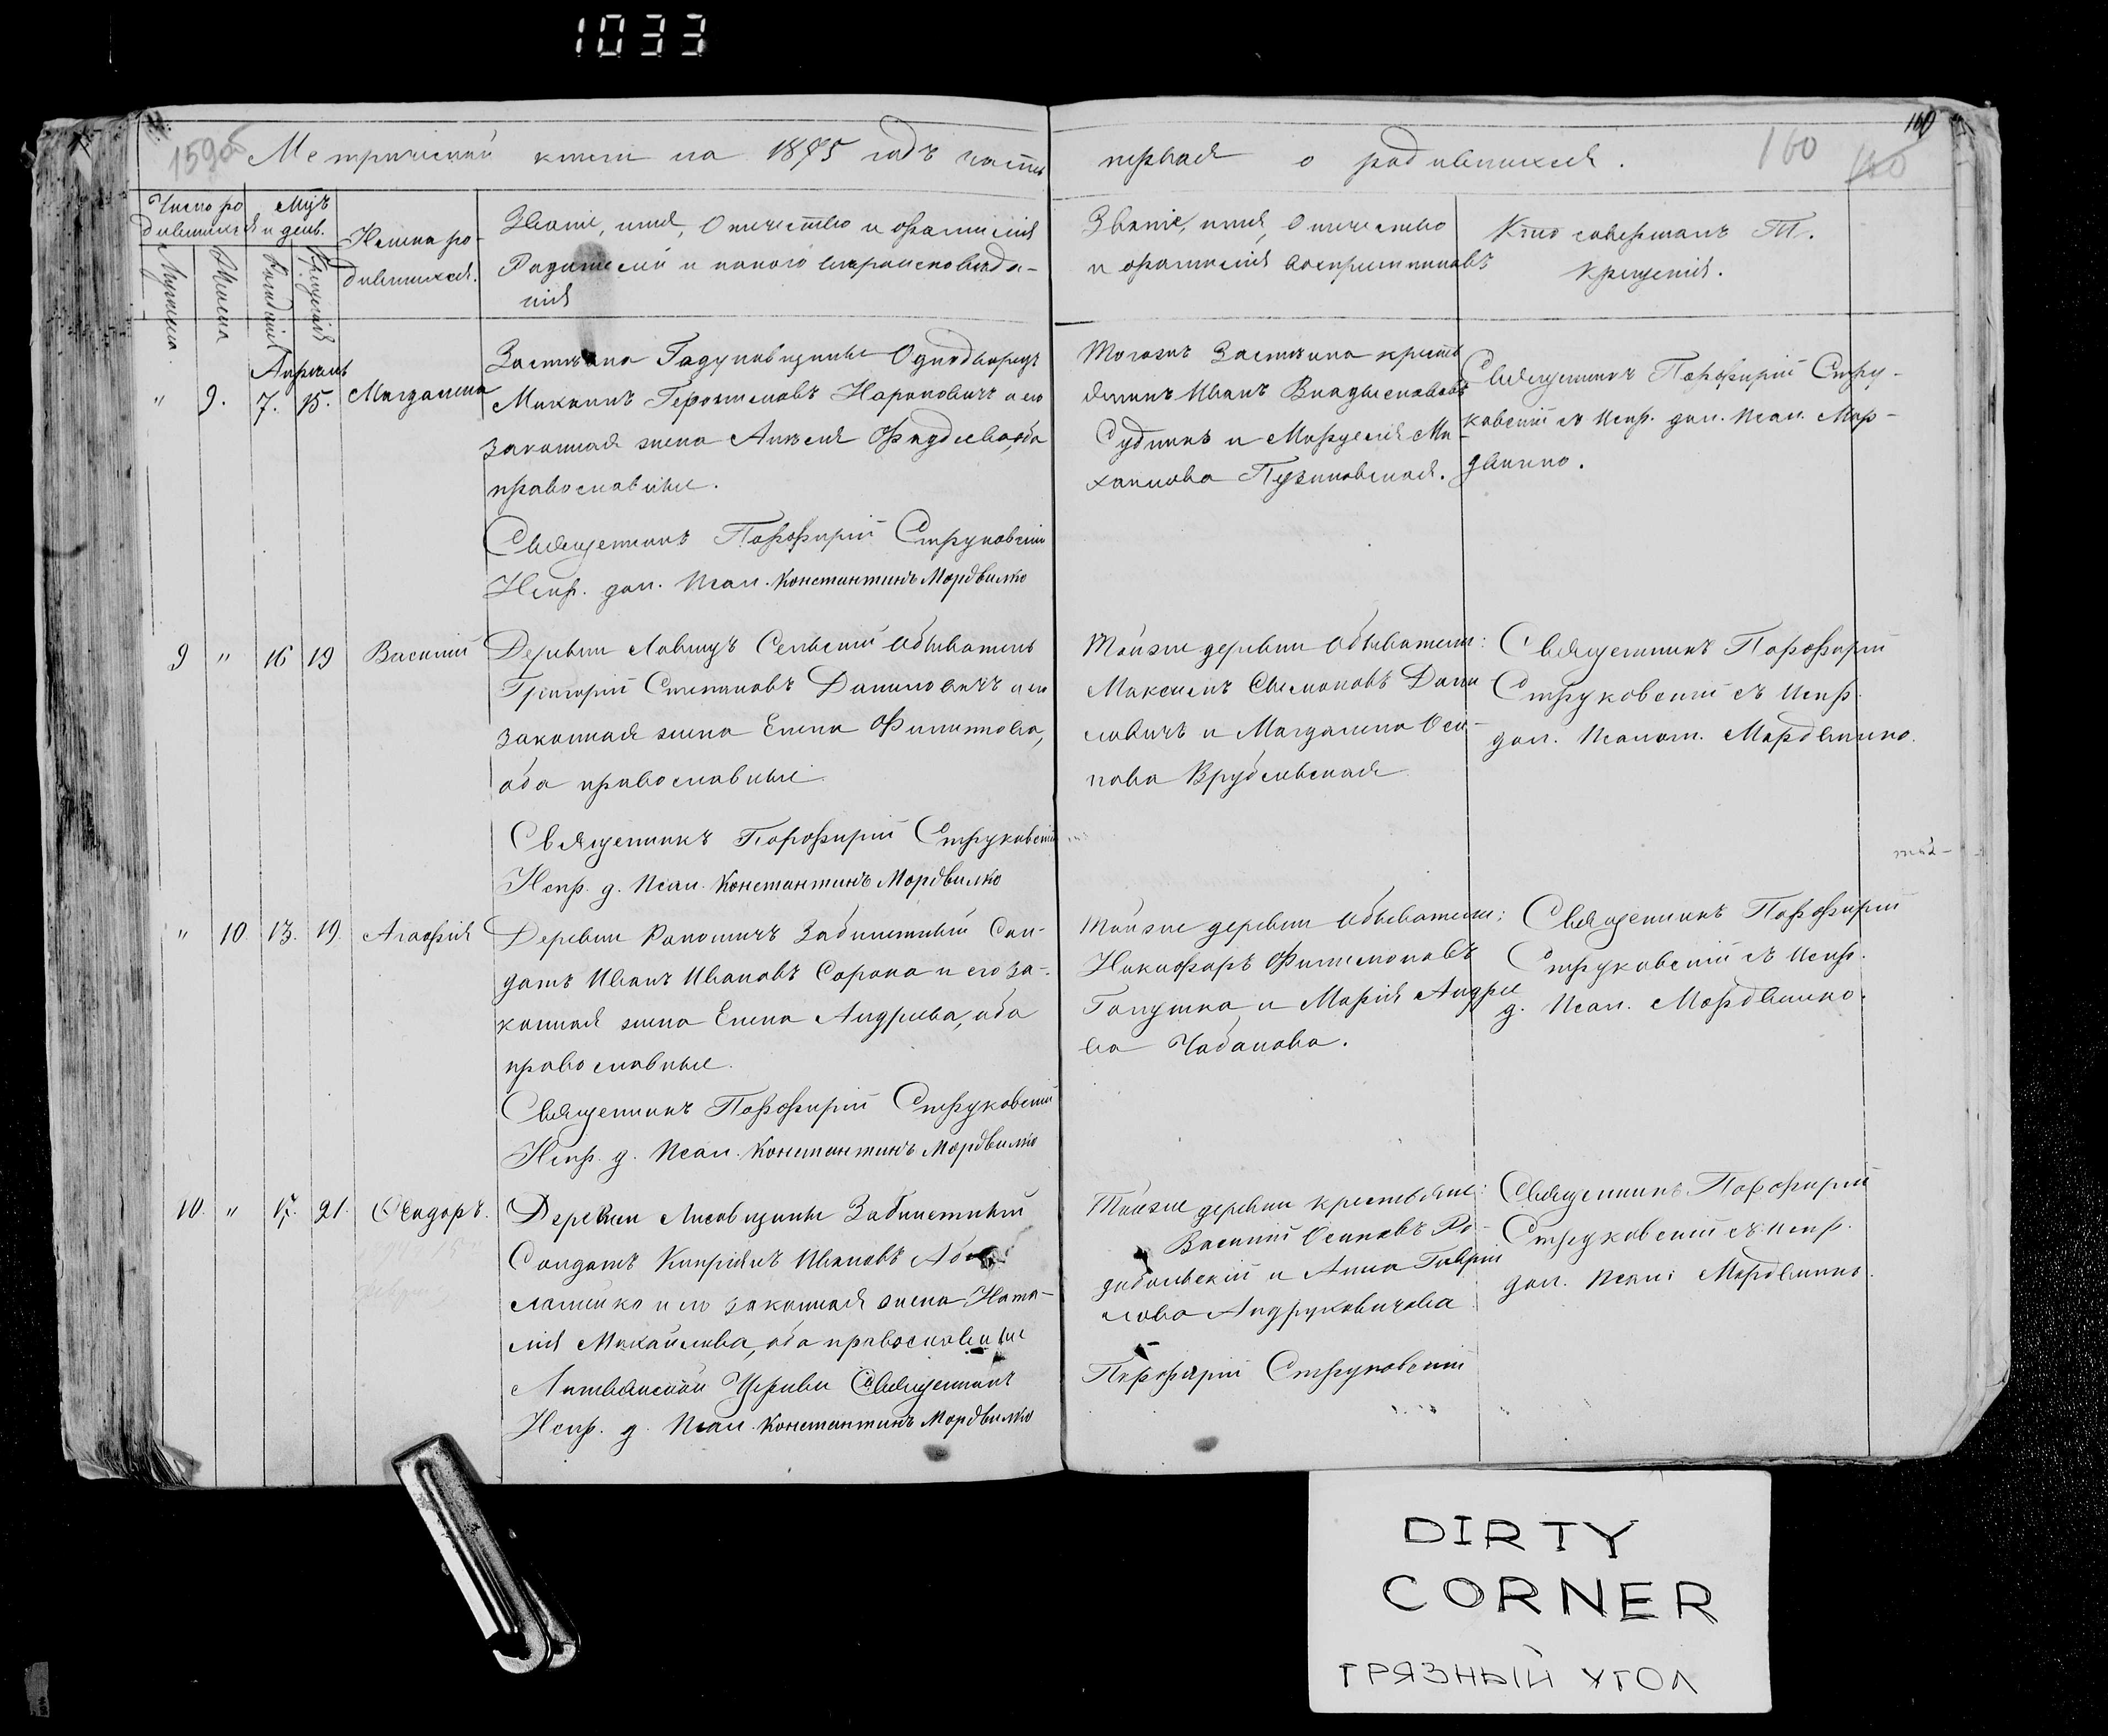 1033
159об
Метрической книги на 1875 годъ часть первая о родившихся.
160
160
Число родившихся
Мѣс. и день.
Мужеска
Женска
Рожденія
Крещенія
Имена ро-
дившихся.
Званіе, имя, Отчество и фамилія
Родителей и какого вѣроисповѣда-
нія
Званіе, имя, Отчество
и фамилія воспріемниковъ
Кто совершалъ Т.
крещенія.
Апрѣль
" 9. 7. 15. Магдалина
Застѣнка Гадуновщины Однодворецъ
Михаилъ Геронимовъ Нарановичъ и его
законная жена Анжеля Фадѣева, оба
православные.
Священникъ Порфирій Струковскій
Испр. дол. Псал. Константинъ Мордвилко
Тогожъ Застѣнка кресть
янинъ Иванъ Владыславовъ
Судникъ и Марцеля Ми-
хаилова Пузиновская.
Священникъ Порфирій Стру-
ковскій съ Испр. дол. Псал. Мор-
двилко.
9 " 16 19 Василій
Деревни Лавицъ Сельскій Обыватель
Григорій Степановъ Даниловичъ и его
законная жена Елена Филиппова,
оба православные
Священникъ Порфирій Струковскій
Испр. д. Псал. Константинъ Мордвилко
Тойже деревни Обыватели:
Максимъ Симоновъ Дани
ловичъ и Магдалина Оси-
пова Врублевская
Священникъ Порфирій
Струковскій съ Испр.
дол. Псалом. Мордвилко.
" 10. 13. 19. Агафія
Деревни Рапотичъ Забилетный Сол-
датъ Иванъ Ивановъ Сорока и его за-
конная жена Елена Андреева, оба
православные.
Священникъ Порфирій Струковскій
Испр. д. Псал. Константинъ Мордвилко
Тойже деревни Обыватели:
Никифоръ Филимоновъ
Галушка и Марія Андрее
ва Чабанова.
Священникъ Порфирій
Струковскій съ Испр.
д. Псал. Мордвилко.
10. " 17. 21.
Деревни Лисовщины Забилетный
Солдатъ Кипріянъ Ивановъ
и его законная жена Ната-
лія Михайлова, оба православные
Литвянской Церкви Священникъ
Порфирій Струковскій
Испр. д. Псал. Константинъ Мордвилко
Тойже деревни крестьяне:
Василій Осиповъ
и Анна Гаврі
лова Андруковичова
Священникъ Порфирій
Струковскій съ испр.
дол. Псал: Мордвилко.
DIRTY
CORNER
ГРЯЗНЫЙ УГОЛ